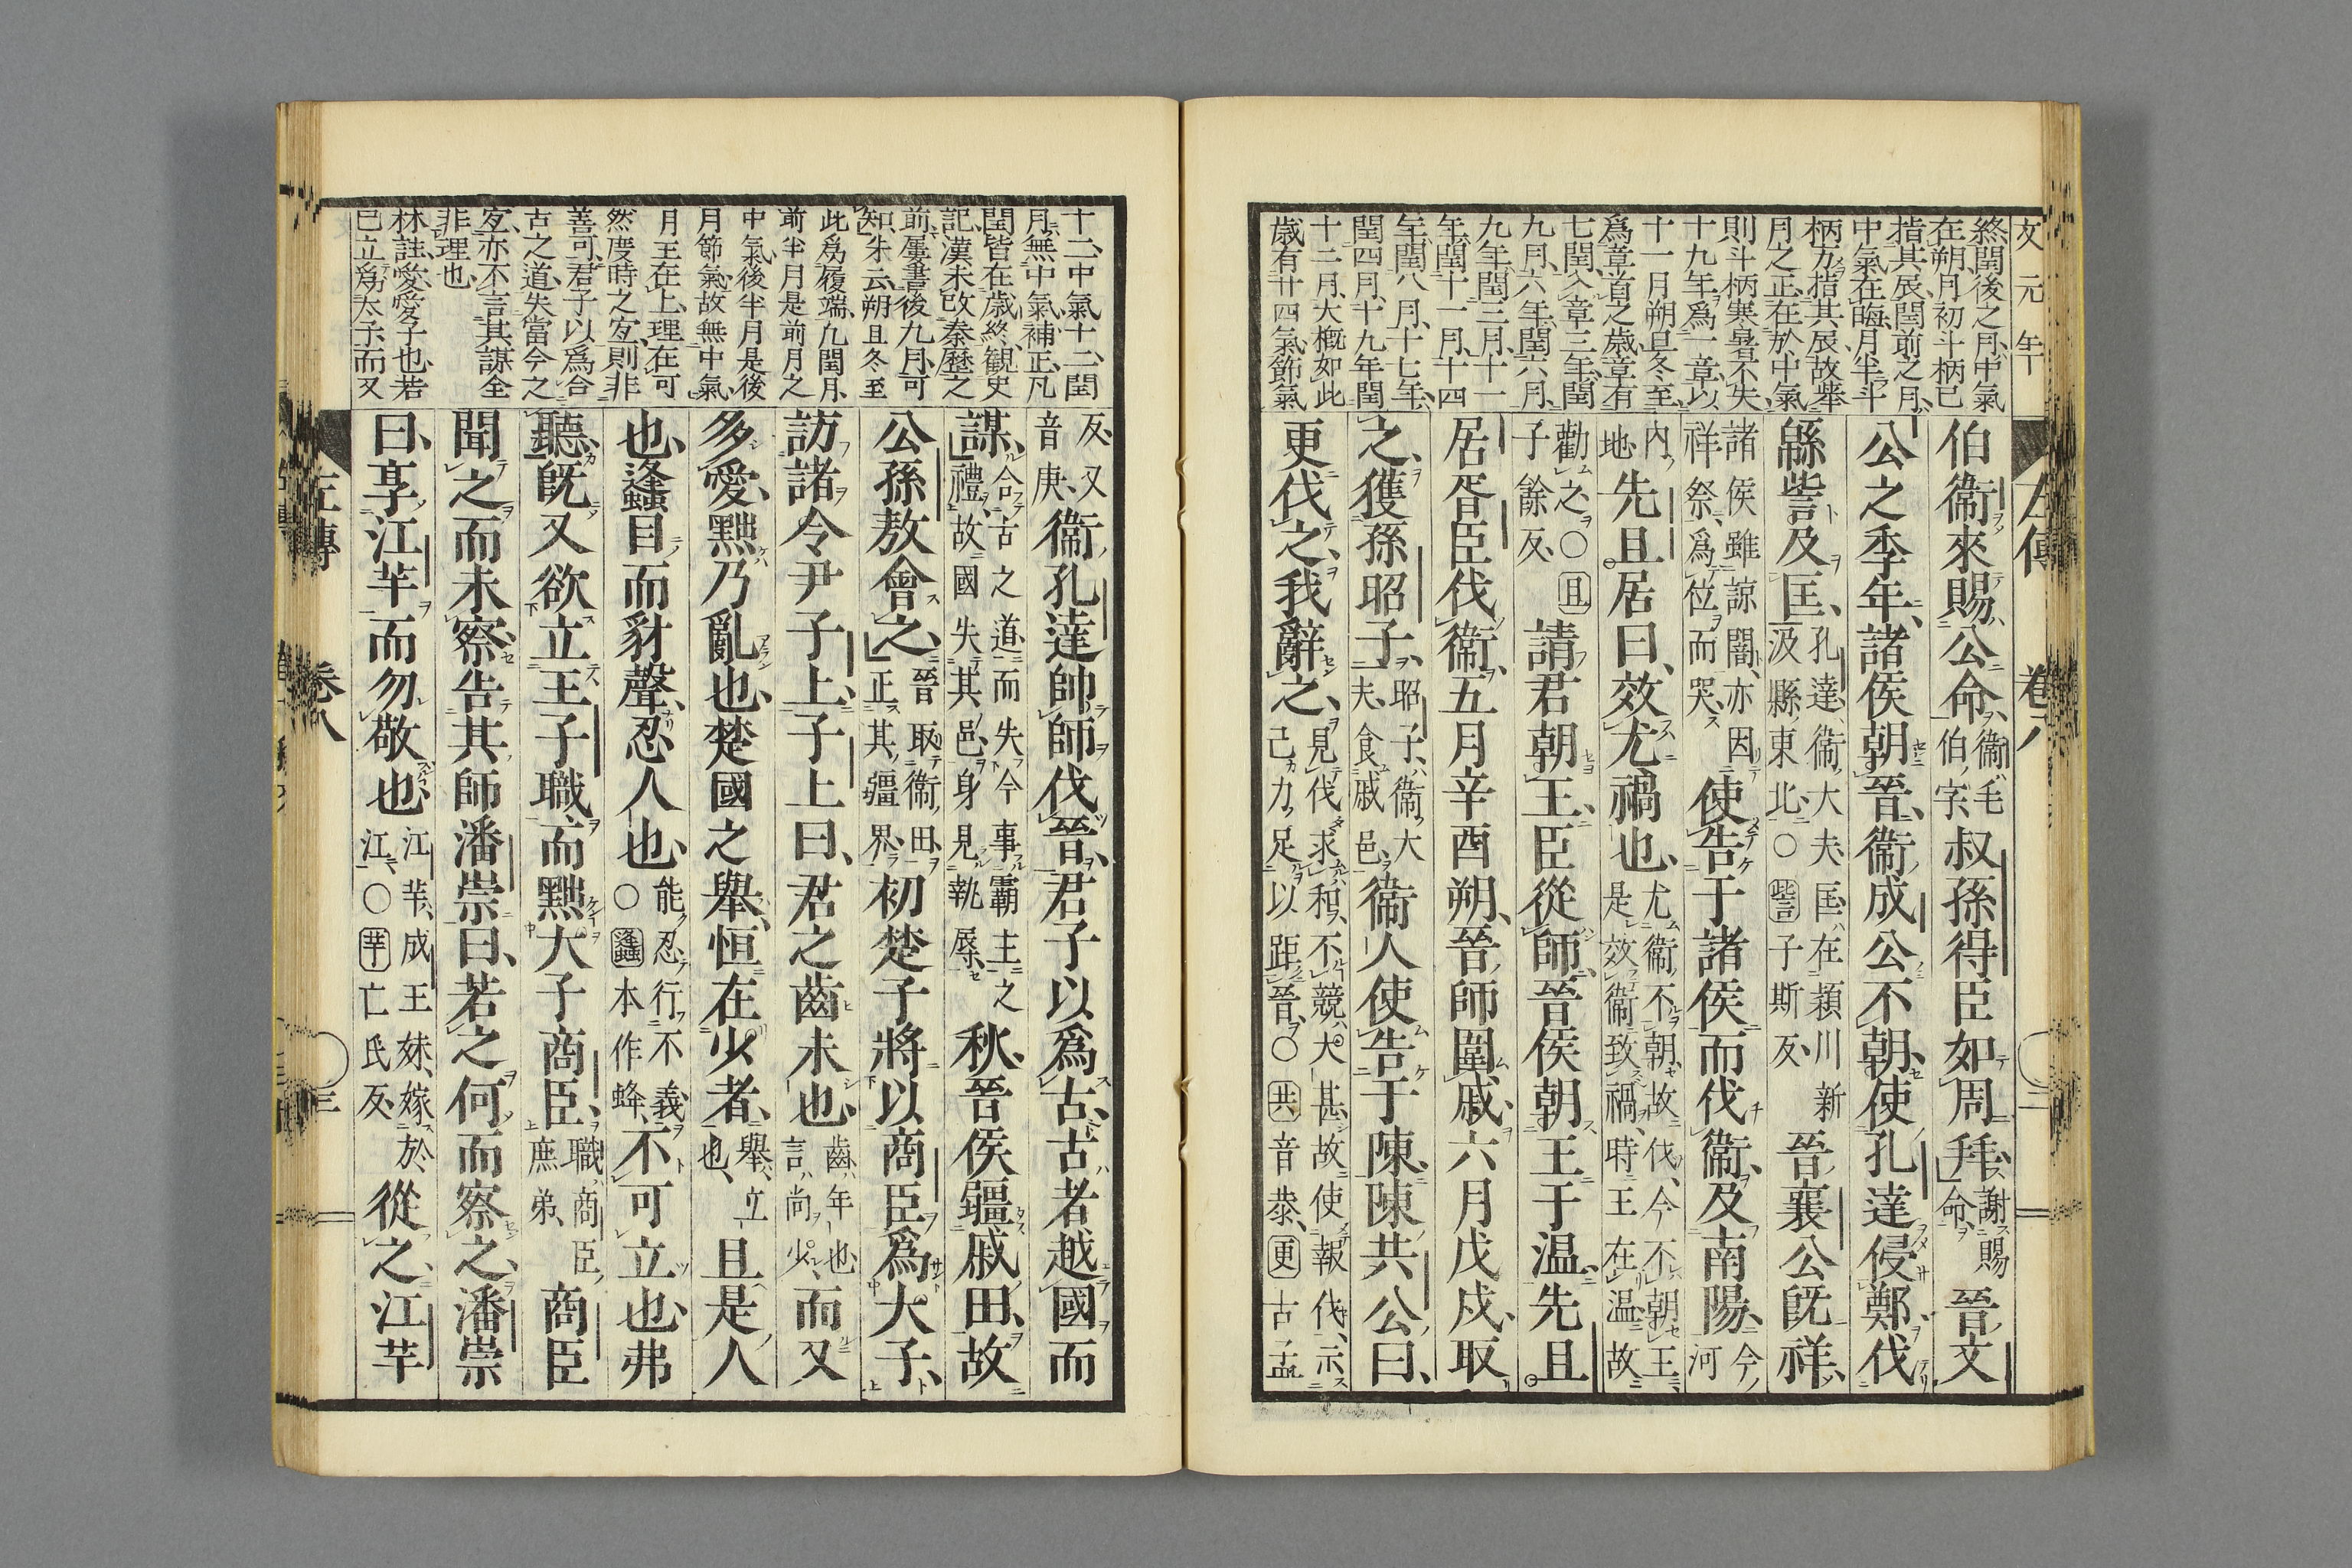 文元年
終閏後之月中氣
在朔月初斗柄已
指其辰閏前之月
中氣在晦月半斗
柄方指其辰故舉
月之正在於中氣
則斗柄寒暑不失
十九年爲一章以
十一月朔旦冬至
爲章首之歲章有
七閏入章三年閏
九月六年閏六月
九年閏三月十一
年閏十一月十四
年閏八月十七年
閏四月十九年閏
十二月大概如此
歲有廿四氣節氣
左傳 卷八 二
伯衞來賜公命衞毛伯字叔孫得臣如周拜謝賜命晉文
公之季年諸侯朝晉衞成公不朝使孔達侵鄭伐
緜訾及匡孔達衞大夫匡在潁川新汲縣東北○訾子斯反晉襄公旣祥
諸侯雖諒闇亦因祥祭爲位而哭使告于諸侯而伐衞及南陽今河
內地先且居曰效尤禍也尤衞不朝故伐今不朝王是效衞致禍時王在温故
勸之○且子餘反請君朝王臣從師晉侯朝王于温先且
居胥臣伐衞五月辛酉朔晉師圍戚六月戊戌取
之獲孫昭子昭子衞大夫食戚邑衞人使告于陳陳共公曰
更伐之我辭之見伐求和不競大甚故使報伐示己力足以距晉○共音恭更古孟
十二中氣十二閏
月無中氣補正凡
閏皆在歲終觀史
記漢未改秦歷之
前屢書後九月可
知朱云朔旦冬至
此爲履端凡閏月
前半月是前月之
中氣後半月是後
月節氣故無中氣
月王在上理在可
然度時之宜則非
善可君子以爲合
古之道失當今之
宜亦不言其謀全
非理也
林註愛愛子也若
已立爲太子而又
反又音庚衞孔達帥師伐晉君子以爲古古者越國而
謀合古之道而失今事霸主之禮故國失其邑身見執辱秋晉侯疆戚田故
公孫敖會之晉取衞田正其疆界初楚子將以商臣爲大子
訪諸令尹子上子上曰君之齒未也齒年也言尚少而又
多愛黜乃亂也楚國之舉恒在少者舉立也且是人
也蠭目而豺聲忍人也能忍行不義○蠭本作蜂不可立也弗
聽旣又欲立王子職而黜大子商臣職商臣庶弟商臣
聞之而未察告其師潘崇曰若之何而察之潘崇
曰享江芈而勿敬也江芈成王妹嫁於江○芈亡氏反從之江芈
左傳 卷八 三